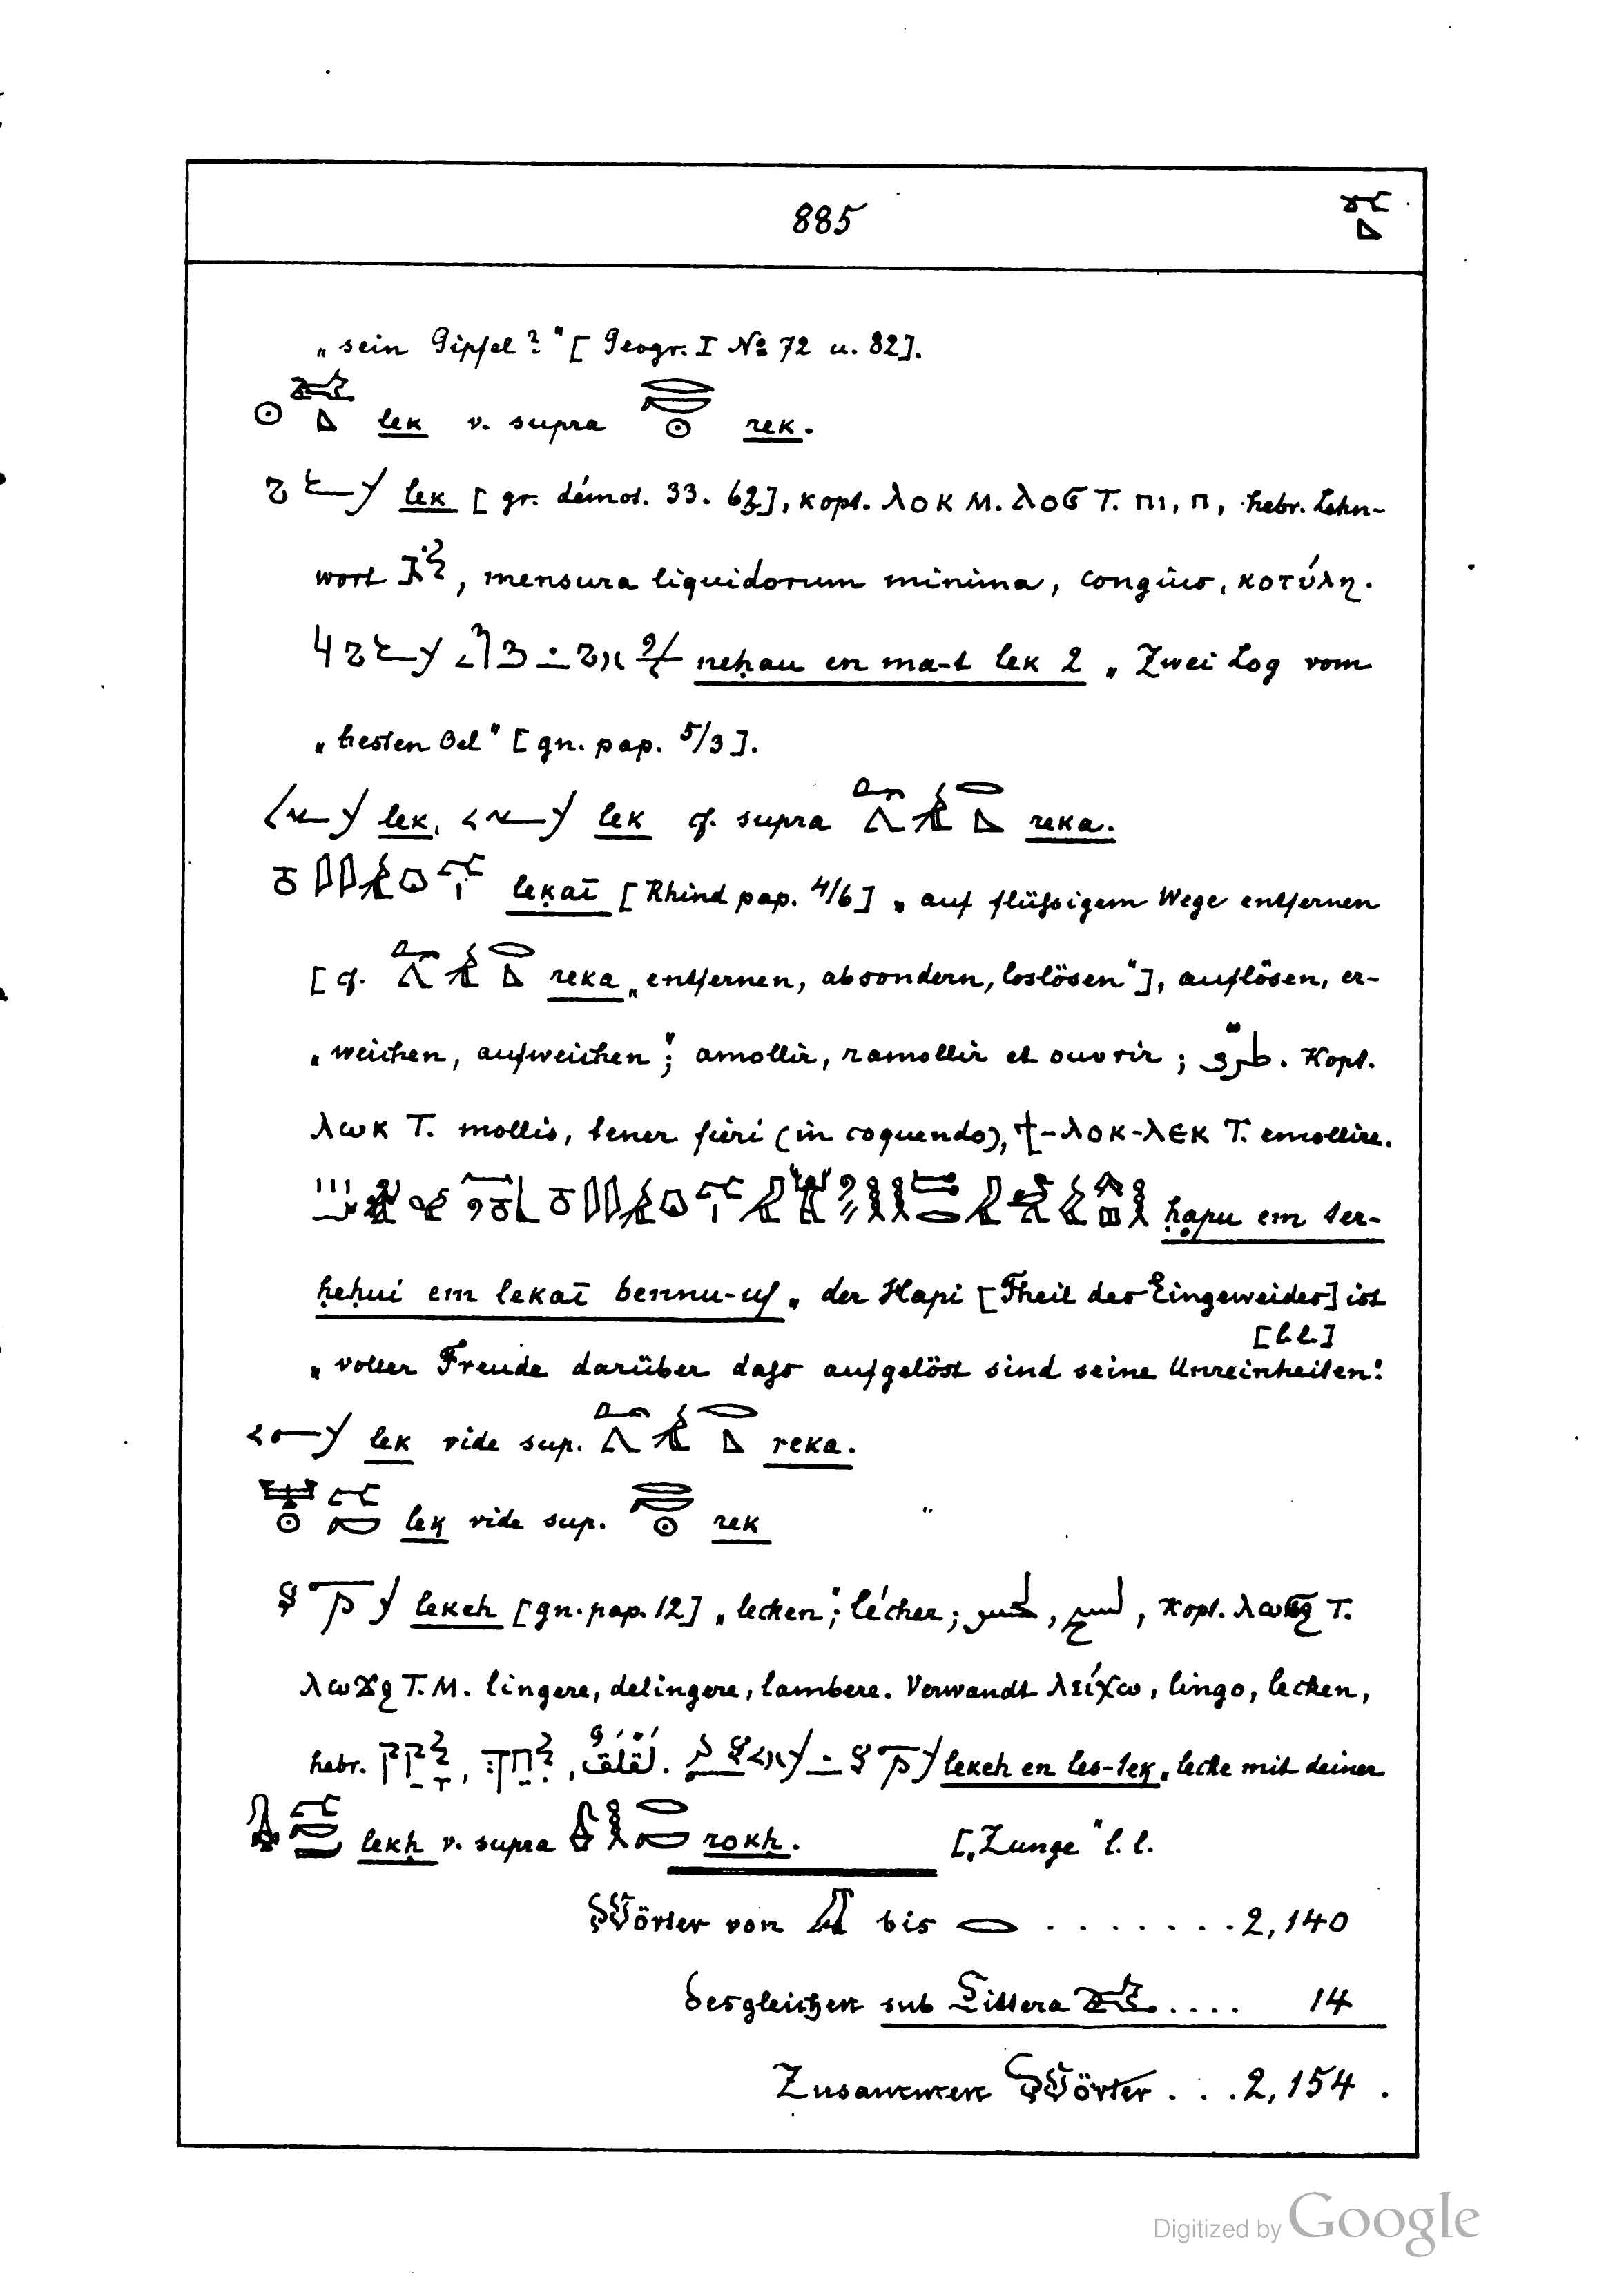 885
„sein Gipfel?“ [Geogr. I No 72 u. 82].
lek v. supra rek.
lek [gr. démot. 33. 62], Kopt. ⲗⲟⲕ M. ⲗⲟϭ T. ⲡⲓ, ⲡ, hebr. Lehn-
wort לֹג, mensura liquidorum minima, congius, κοτύλη.
neḥau en ma-t lek 2 „Zwei Log vom
„besten Oel“ [gn. pap. 5/3].
lek, lek cf. supra reka.
leḳaī [Rhind pap. 4/6] „auf flüßigem Wege entfernen
[cf. reka „entfernen, absondern, loslösen“], auflösen, er-
„weichen, aufweichen“; amollir, ramollir et ouvrir; طرّى. Kopt.
ⲗⲱⲕ T. mollis, tener fieri (in coquendo), ϯ-ⲗⲟⲕ-ⲗⲉⲕ T. emollire.
ḥapu em ter-
ḥeḥui em lekaī bennu-uf „der Hapi [Theil des Eingeweides] ist
[l.l.]
„voller Freude darüber daß aufgelöst sind seine Unreinheiten!
lek vide sup. reka.
leḳ vide sup. rek
lekeh [gn. pap. 12] „lecken“; lécher; Kopt. T.
ⲗⲱϫϩ T. M. lingere, delingere, lambere. Verwandt λείχω, lingo, lecken,
hebr. לָקַק, לָחַךְ, لَقْلَقَ. lekeh en les-teḳ „lecke mit deiner
lekḥ v. supra rokḥ. [„Zunge“ l. l.
Wörter von bis . . . . . . . 2,140
desgleichen sub Littera . . . . 14
Zusammen Wörter . . . 2,154 .
Digitized by Google